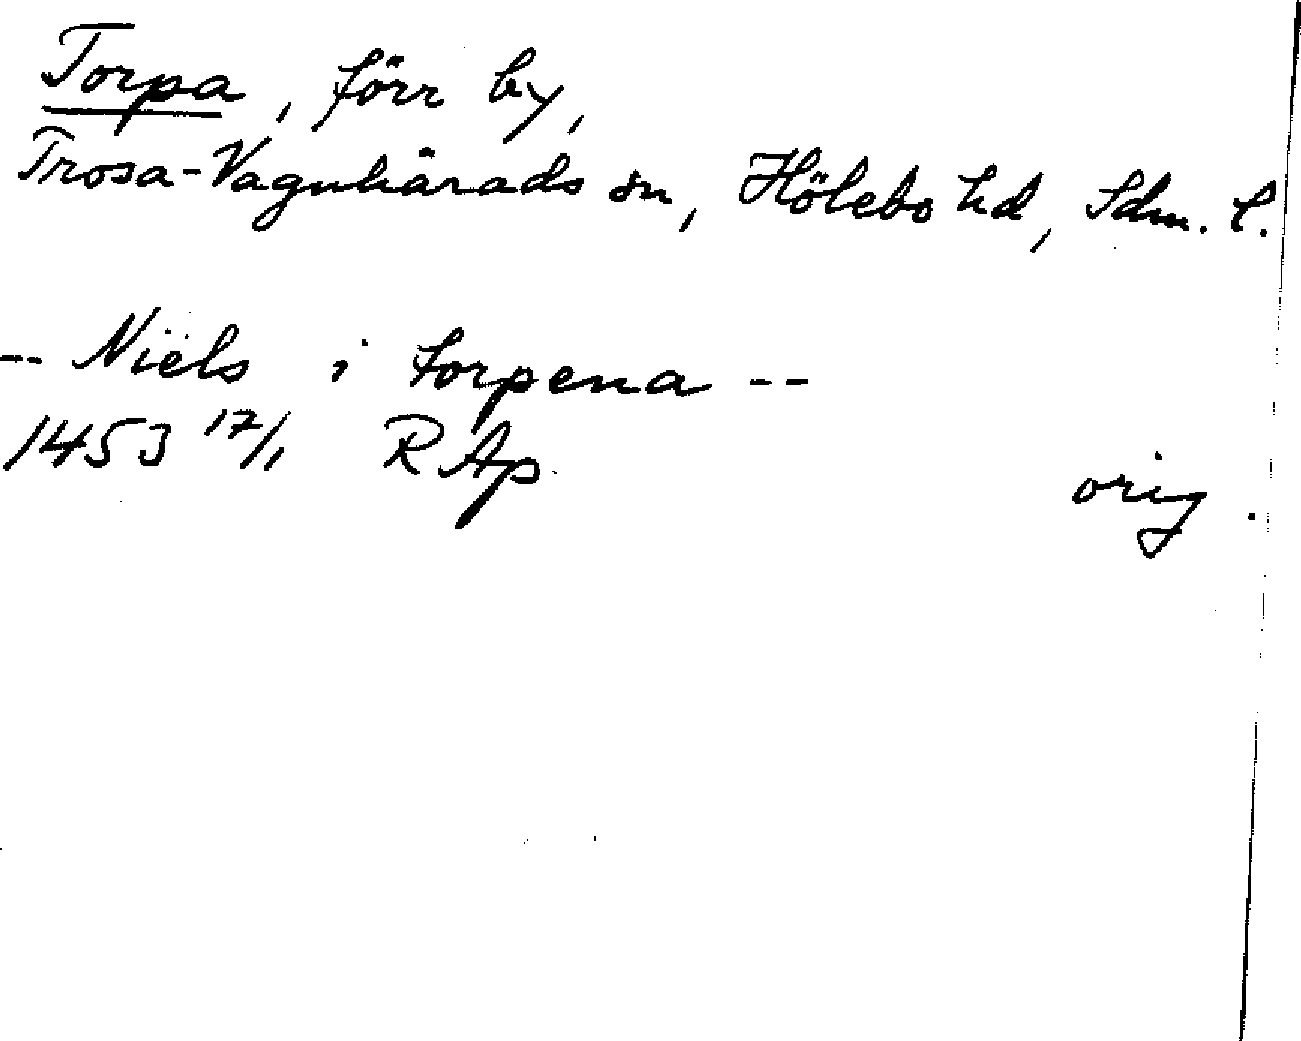 Torpa, förr by,
Trosa-Vagnhärads sn, Hölebo hd, Sdm. l.
-- Niels i torpena --
1453 17/1 RAp
orig.